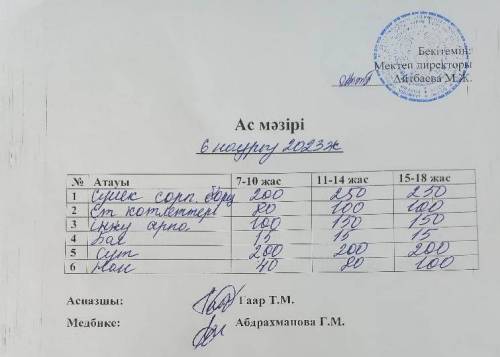 Бекітемін:
Мектеп директоры
Айтбаева М.Ж.
Ас мәзірі
6 наурыз 2023ж
№ Атауы 7-10 жас 11-14 жас 15-18 жас
1 Сүйек сорп. борщ 200 250 250
2 Ет котлеттері 80 100 100
3 Інжу арпа 100 150 150
4 Бал 15 15 15
5 Сүт 200 200 200
6 Нан 40 80 100
Аспазшы: Гаар Т.М.
Медбике: Абдрахманова Г.М.